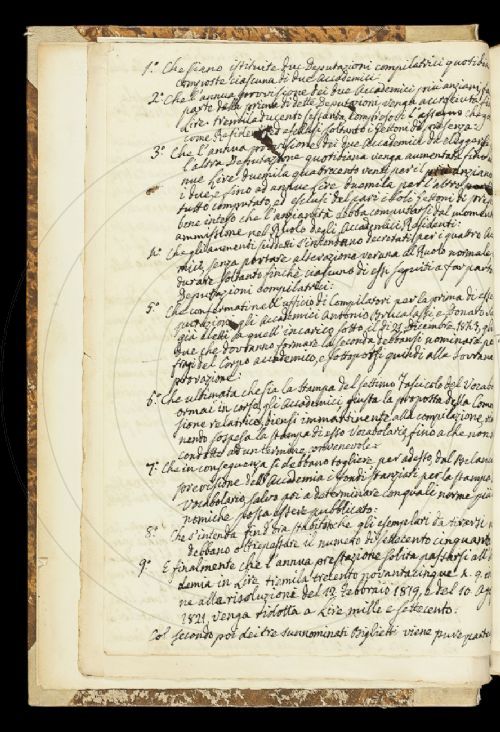 1.° Che siano istituite due Deputazioni compilatrici quotidia
composte ciascuna di due Accademici:
2.° Che l'annua provvisione dei due Accademici più anziani, fa
parte della prima di dette Deputazioni venga accresciuta fino
Lire tremiladucento sessanta, compresovi l'assegno che go
come Residenti, ed esclusi soltanto i gettoni di presenza:
3.° Che l'annua provvisione dei due Accademici da eleggersi
l'altra Deputazione quotidiana venga aumentata fino
nue lire duemila quattrocento venti per il più anziano
i due, e fino ad annue lire duemila per l'altro
tutto computato, ed esclusi del pari i soli gettoni di pre
bene inteso che l'anzianità debba computarsi dal momen
ammissione nel Ruolo degli Accademici Residenti:
4.° Che gli aumenti suddetti s'intendano decretati per quattro Ac
mici, senza portare alterazione veruna al Ruolo normale
durare soltanto finchè ciascuno di essi seguiti a far parte
deputazioni compilatrici:
5.° Che confermati nell'ufficio di Compilatori per la prima di esse
putazioni gli Accademici Antonio Brucalassi, e Donato Sal
già eletti a quell'incarico sotto il dì 21 Dicembre 1847, gli
due che dovranno formare la seconda debbansi nominare pe
fragi del Corpo accademico, e sottoporsi quindi alla Sovrana
provazione:
6.° Che ultimata che sia la stampa del settimo Fascicolo del Vocabo
ormai in corso, gli Accademici giusta la proposta della Com
sione relatrice, diensi immantinente alla compilazione, ri
nendo sospesa la stampa di esso Vocabolario fino a che non s
condotto ad un termine convenevole:
7.° Che in conseguenza si debbano togliere per adesso dal Bilanc
previsione dell'Accademia i fondi stanziati per la stampa
Vocabolario, salvo poi a determinare con quale norme più
nomiche possa essere pubblicato:
8.° Che s'intenda fin d'ora stabilito che gli esemplari da tirarsi n
debbano oltrepassare il numero di settecento cinquanta
9.° E finalmente che l'annua prestazione solita passarsi all'A
demia in Lire tremila trecento novantacinque
ne alla risoluzione del 19 Febbraio 1819, e del 10 Ag
1821, venga ridotta a Lire mille e settecento:
Col secondo poi dei tre sunnominati Biglietti viene pure parte